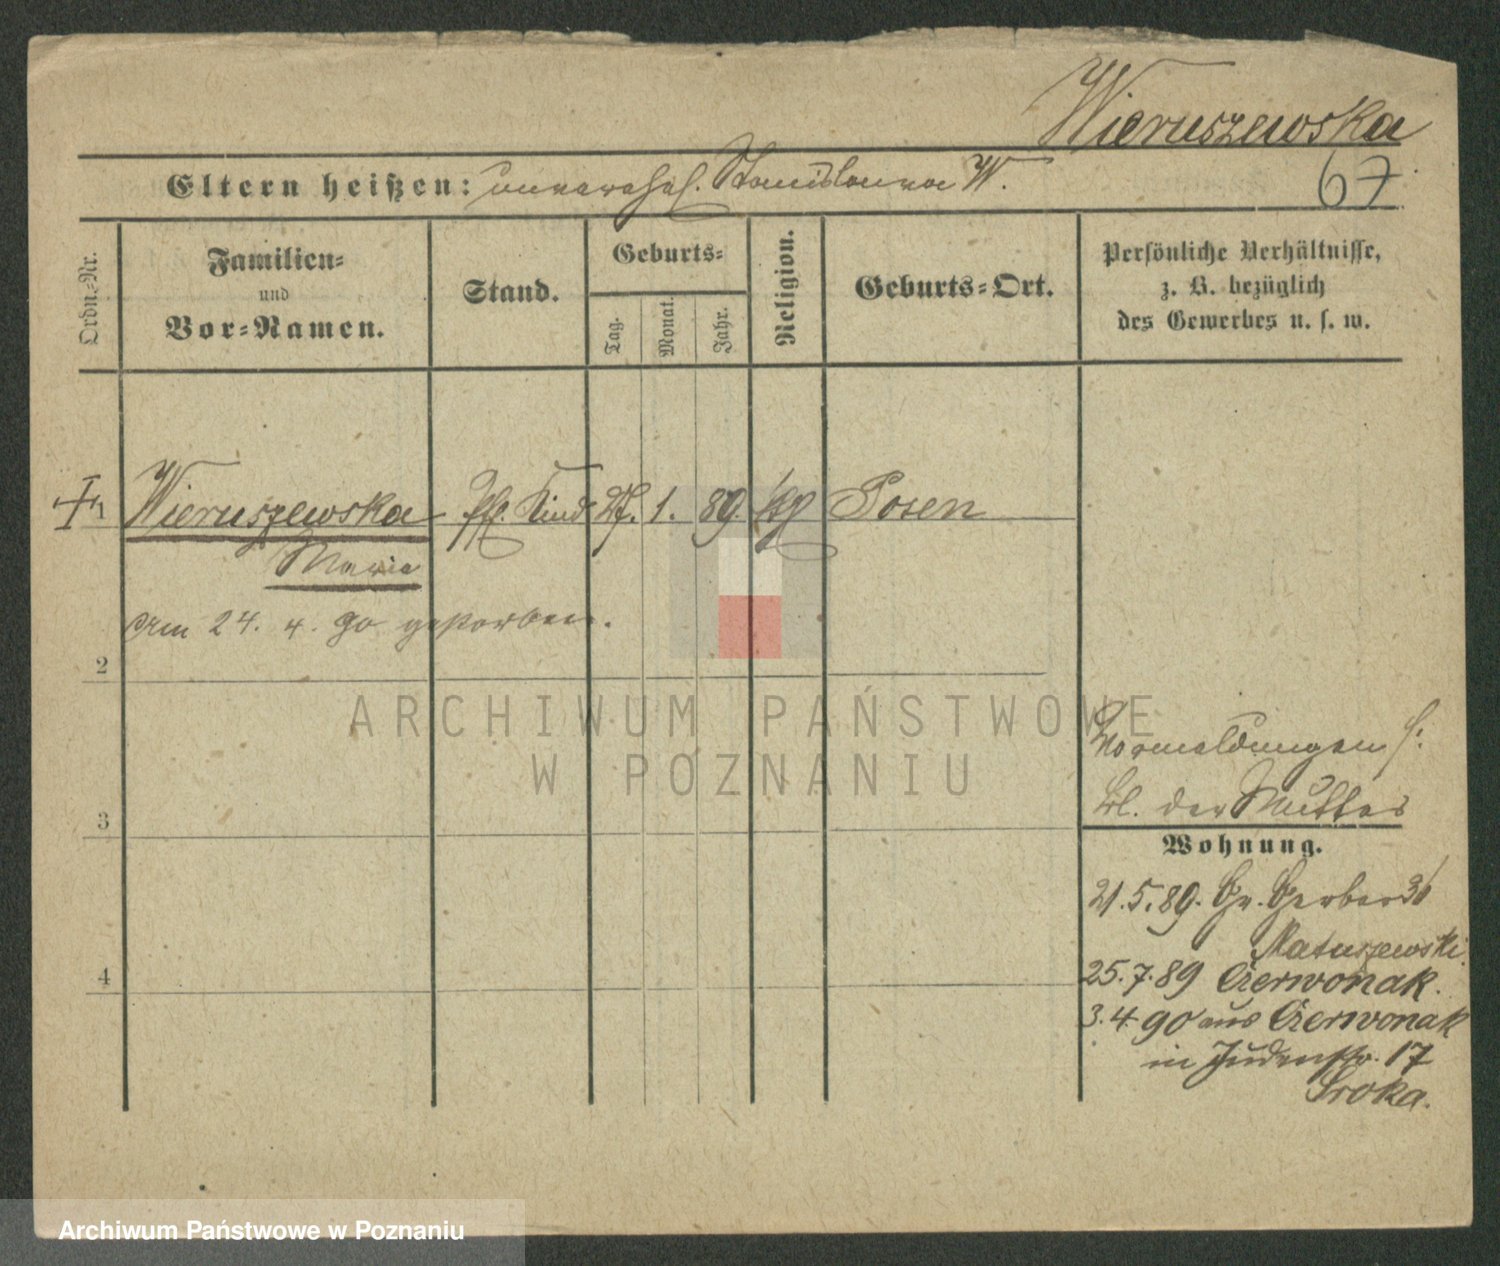 Wieruszewska
67
Eltern heißen: unverehel. Stanislawa W.
Ordn.-Nr.
Familien- und Vor-Namen.
Stand.
Geburts-
Tag.
Monat.
Jahr.
Religion.
Geburts-Ort.
Persönliche Verhältnisse,
z. B. bezüglich
des Gewerbes u. s. w.
1 Wieruszewska Pfl. Kind 27. 1. 89 kg Posen
Maria
am 24. 4. 90 gestorben.
2
3
4
Vormeldungen s:
bl. der Mutter
Wohnung.
21.5.89. Gr. Gerber 36
Matuszewski
25.7.89 Czerwonak.
3.4.90 aus Czerwonak
in Judenstr. 17
Sroka.
ARCHIWUM PAŃSTWOWE
W POZNANIU
Archiwum Państwowe w Poznaniu